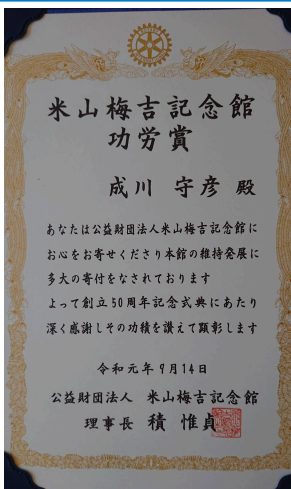 米山梅吉記念館
功労賞
成川 守彦 殿
あなたは公益財団法人米山梅吉記念館に
お心をお寄せくださり本館の維持発展に
多大の寄付をなされております
よって創立50周年記念式典にあたり
深く感謝しその功績を讃えて顕彰します
令和元年9月14日
公益財団法人 米山梅吉記念館
理事長 積 惟貞